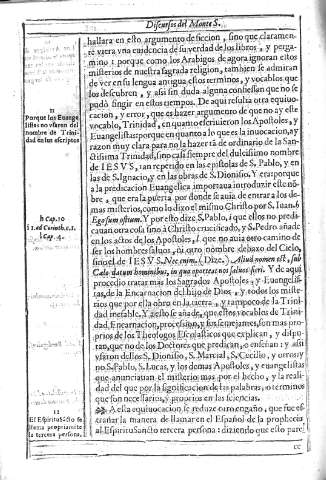 Discursos del Monte S.
hallara en esto argumento de ficcion, sino que claramente
vuiera vna euidencia de su verdad de los libros, y pergamino
: porque como los Arabigos de agora ignoran estos
misterios de nuestra sagrada religion, tambien se admiran
de ver en su lengua antigua estos terminos, y vocablos que
los descubren, y assi sin duda alguna confiessan que no se
pudo fingir en estos tiempos. De aqui resulta otra equiuocacion,
y error, que es hazer argumento de que no ay este
vocablo, Trinidad, en quanto escriuieron los Apostoles, y
Euangelistas: porque en quanto a lo que es la inuocacion, ay
razon muy clara para no la hazer tã de ordinario de la Sanctissima
Trinidad, sino casi siempre del dulcissimo nombre
de IESVS, tan repetido en las epistolas de S. Pablo, y en
las de S. Ignacio, y en las obras de S. Dionysio. Y era porque
a la predicacion Euangelica importaua introduzir este nõbre,
que era la puerta por donde se auia de entrar a los demas
misterios, como lo dixo el mismo Christo por S. Iuan
Ego sum ostium. Y por esto dize S. Pablo, que ellos no predicauan
otra cosa sino â Christo crucificado, y S. Pedro añade
en los actos de los Apostoles, que no auia otro camino de
ser los hombres saluos, ni otro nombre debaxo del Cielo,
sino el de IESVS. Nec enim. (Dize.) Aliud nomen est, sub
Cœlo datum hominibus, in quo oporteat nos saluos fieri. Y de aqui
procedio tratar mas los Sagrados Apostoles, y Euangelistas,
de la Encarnacion del hijo de Dios, y todos los misterios
que por ella obrò en la tierra, y tampoco de la Trinidad
inefable. Y a esto se añade, que estos vocablos de Trinidad,
Encarnacion, procession, y sus semejantes, son mas proprios
de los Theologos Escolasticos que explican, y disputan,
que no de los Doctores que predican, o enseñan: y assi
vsaron dellos S. Dionisio, S. Marcial, S. Cecilio, y otros; y
no S. Pablo, S. Lucas, y los demas Apostoles, y euangelistas
que anunciauan el misterio mas por el hecho, y la realidad
del que por la significacion de las palabras, o terminos
que son necessarios, y proprios en las sciencias.
A esta equiuocacion se reduze otro engaño, que fue estrañar
la manera de llamar en el Español de la prophecia
al Espiritu Sancto tercera persona: diziendo que esto pare
ce
11
Porque los Euangelistas
no vsaron del
nombre de Trinidad
en sus escriptos
h Cap. 10
i 1. ad Corinth. c. 1.
Cap. 4.
12
El Espiritu Sãcto se
llama propriamẽte
la tercera persona,